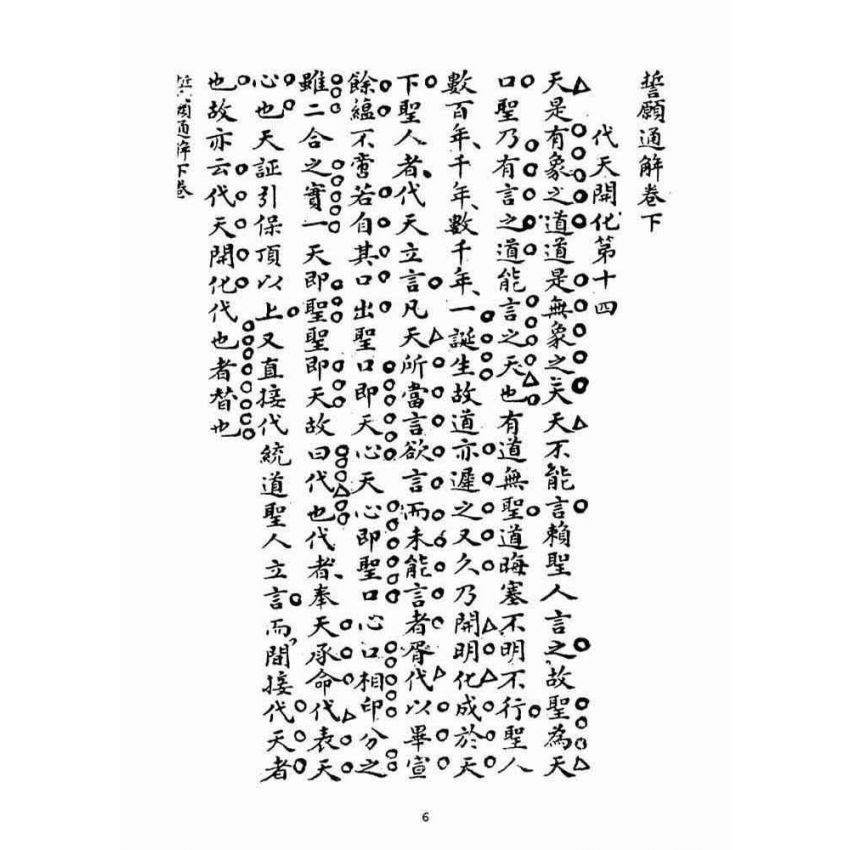 誓願通解卷下
代天開化第十四
天是有象之道道是無象之天天不能言賴聖人言之故聖為天
口聖乃有言之道能言之天也有道無聖道晦塞不明不行聖人
數百年、千年、數千年、一誕生故道亦遲之又久乃開明化成於天
下聖人者代天立言凡天所當言欲言而未能言者胥代以畢宣
餘蘊不啻若自其口出聖口即天心天心即聖口心口相印分之
雖二合之實一天即聖聖即天故曰代也代者、奉天承命代表天
心也天証引保頂以上又直接代統道聖人立言而間接代天者
也故亦云代天開化代也者替也
誓願通解下卷
6